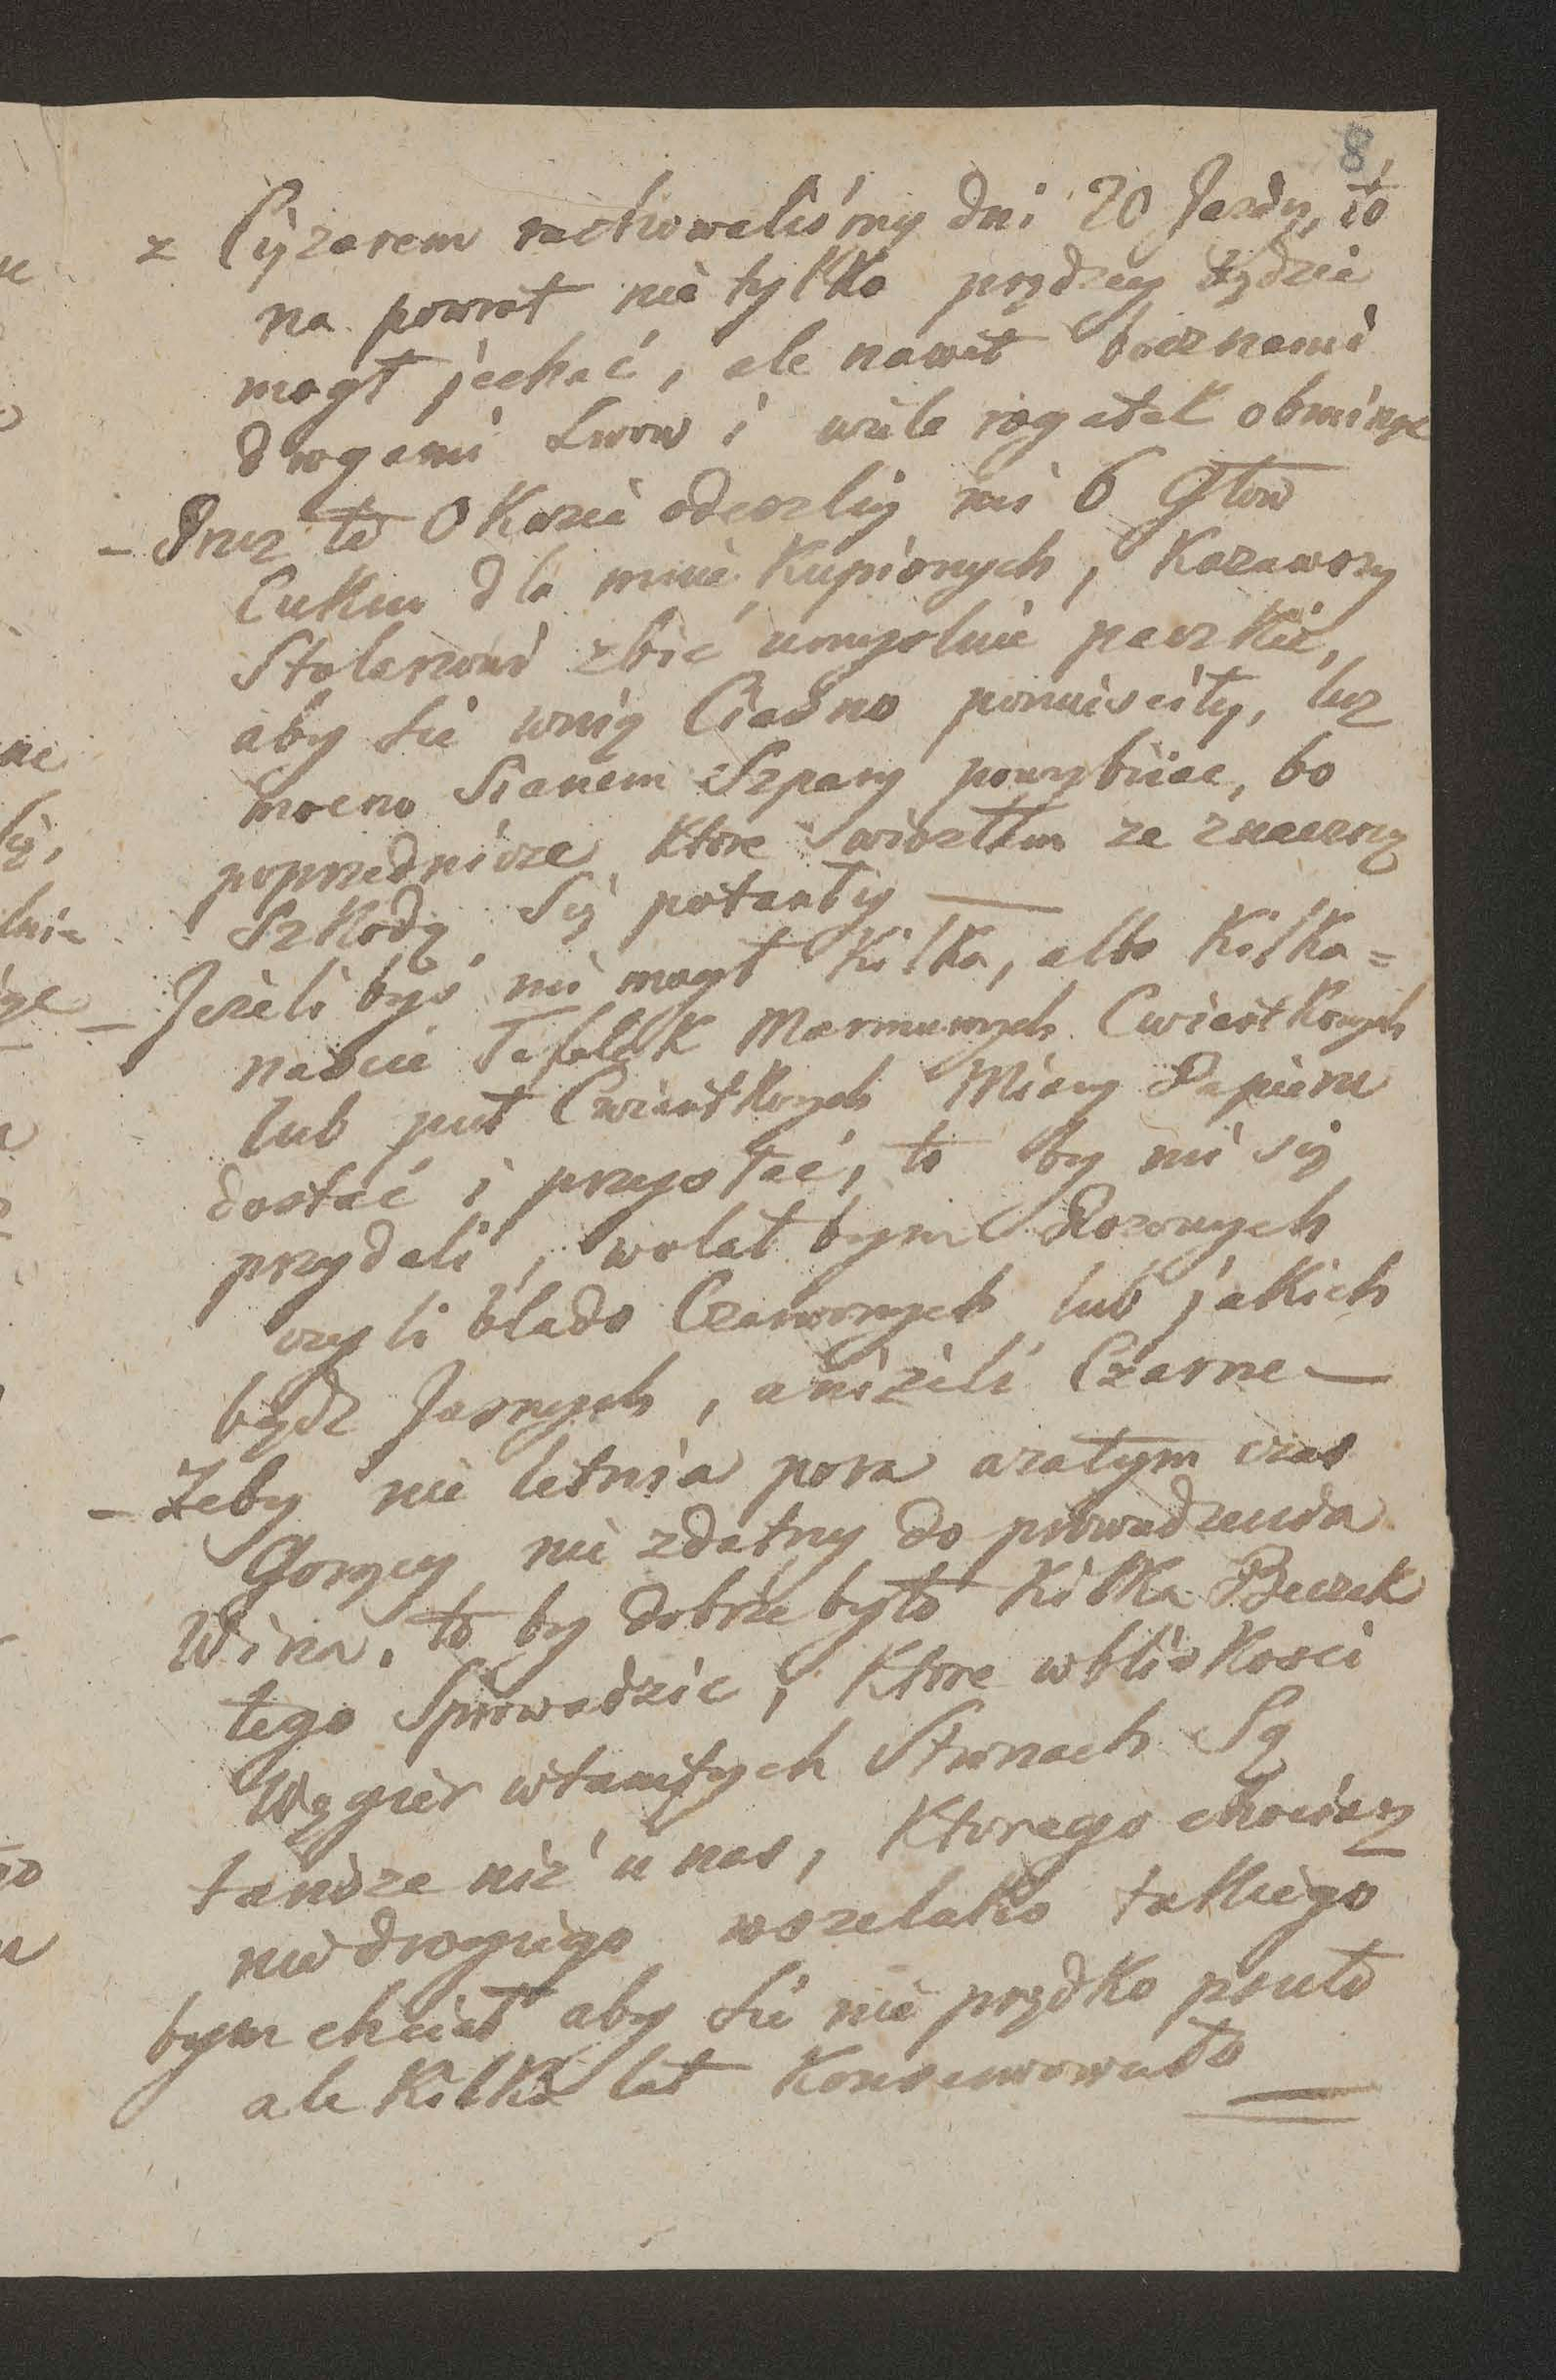 8
z Ciężarem rachowaliśmy dni 20 Jazdy, to
na powrot nie tylko prędzey będzie
mogł jechać, ale nawet bocznemi
drogami Lwow i wiele rogatek obminąć
– Przez te Okazie odeszlij mi 6 Głow
Cukru dla mnie Kupionych, Kazawszy
Stolarzowi zbić umyslnie paczkie,
aby sie wnię Ciasno pomisciły, lub
mocno Sianem Szpary powybiiac, bo
poprzednicze Ktore wiozłem ze znaczną
Szkodą Się potarły —
– Jeżeli byś mi mogł Kilka, albo Kilka=
nascie Tafelek Marmurowych Cwiartkowych
lub puł Cwiartkowych Miary Papieru
dostać i przysłać, to by mi się
przydali, wolał bym Rozowych
czyli blado Czerwonych lub jakich
bądz Jasnych, aniżeli Czarne —
– Żeby nie letnia pora azatym czas
Gorący nie zdatny do prowadzenia
Wina, to by dobrze było Kilka Beczek
tego Sprowadzic, Ktore wbliskosci
Węgier wtamtych Stronach Są
tansze niż u nas, Ktorego chociasz
niedrogiego wszelako takiego
bym chciał aby sie nie prędko psuło
ale Kilka lat Konserwowało